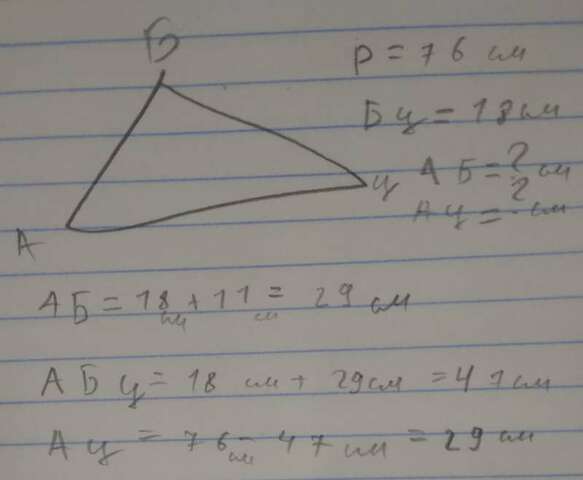 Б
P = 76 см
БЦ = 18 см
Ц
АБ = ? см
А
АЦ = ? см
АБ = 18 см + 11 см = 29 см
АБЦ = 18 см + 29 см = 47 см
АЦ = 76 см - 47 см = 29 см